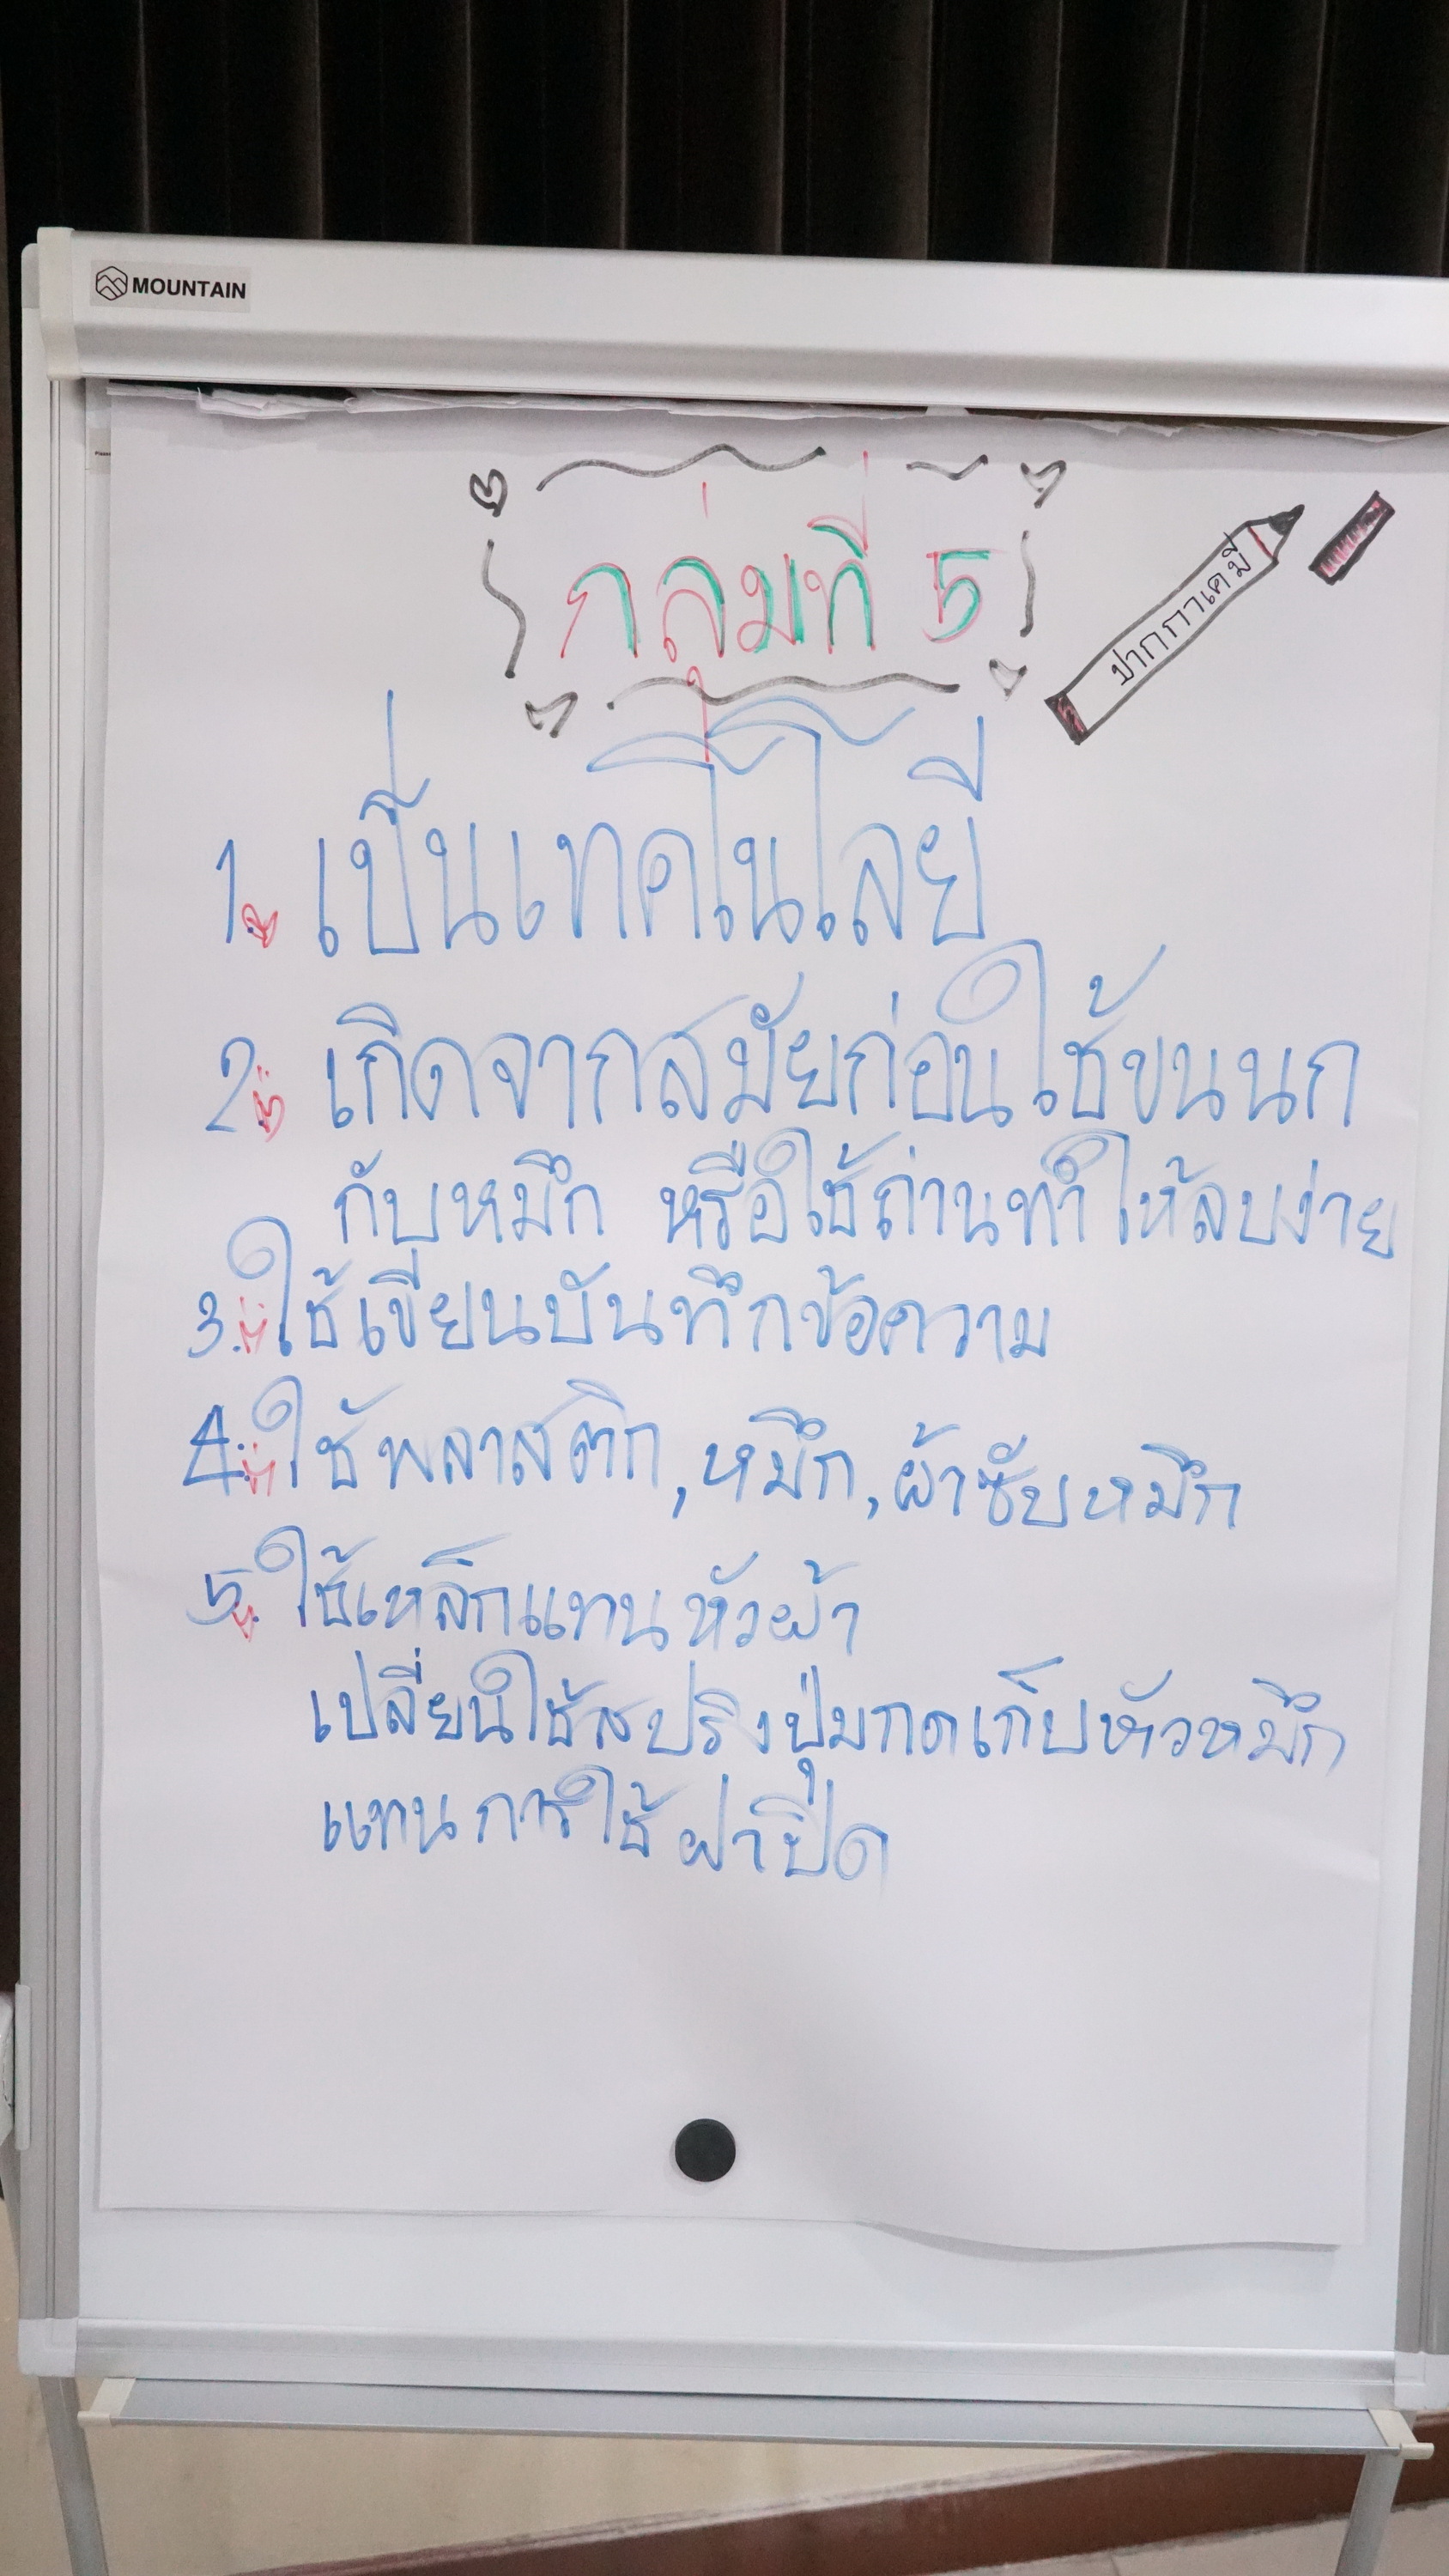 MOUNTAIN
กลุ่มที่ 5
ปากกาเคมี
1. เป็นเทคโนโลยี
2. เกิดจากสมัยก่อนใช้ขนนก
กับหมึก หรือใช้ถ่านทำให้ลบง่าย
3. ใช้เขียนบันทึกข้อความ
4. ใช้พลาสติก, หมึก, ผ้าซับหมึก
5. ใช้เหล็กแทนหัวผ้า
เปลี่ยนใช้สปริงปุ่มกดเก็บหัวหมึก
แทนการใช้ฝาปิด